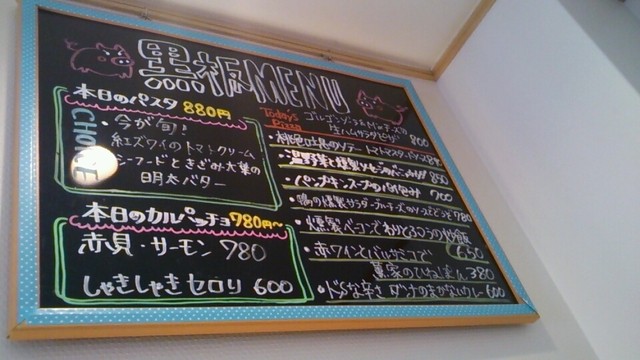 黒板MENU
本日のパスタ 880円
CHOICE
・今が旬!
紅ズワイのトマトクリーム
シーフードときざみ大葉の
明太バター
本日のカルパッチョ 780円〜
赤貝・サーモン 780
しゃきしゃきセロリ 600
Today's
Pizza
ゴルゴンゾーラ&
生ハムサラダピザ 800
・桃色豆腐のソテー トマトマスタードソース
・温野菜と燻製 850
・パンプキンスープの 700
・鴨の燻製サラダ ブルーチーズのソース 780
・燻製ベーコンで
650
・赤ワインとバルサミコで
農家の 380
・ドSな辛さ ダンナのまかないカレー 600